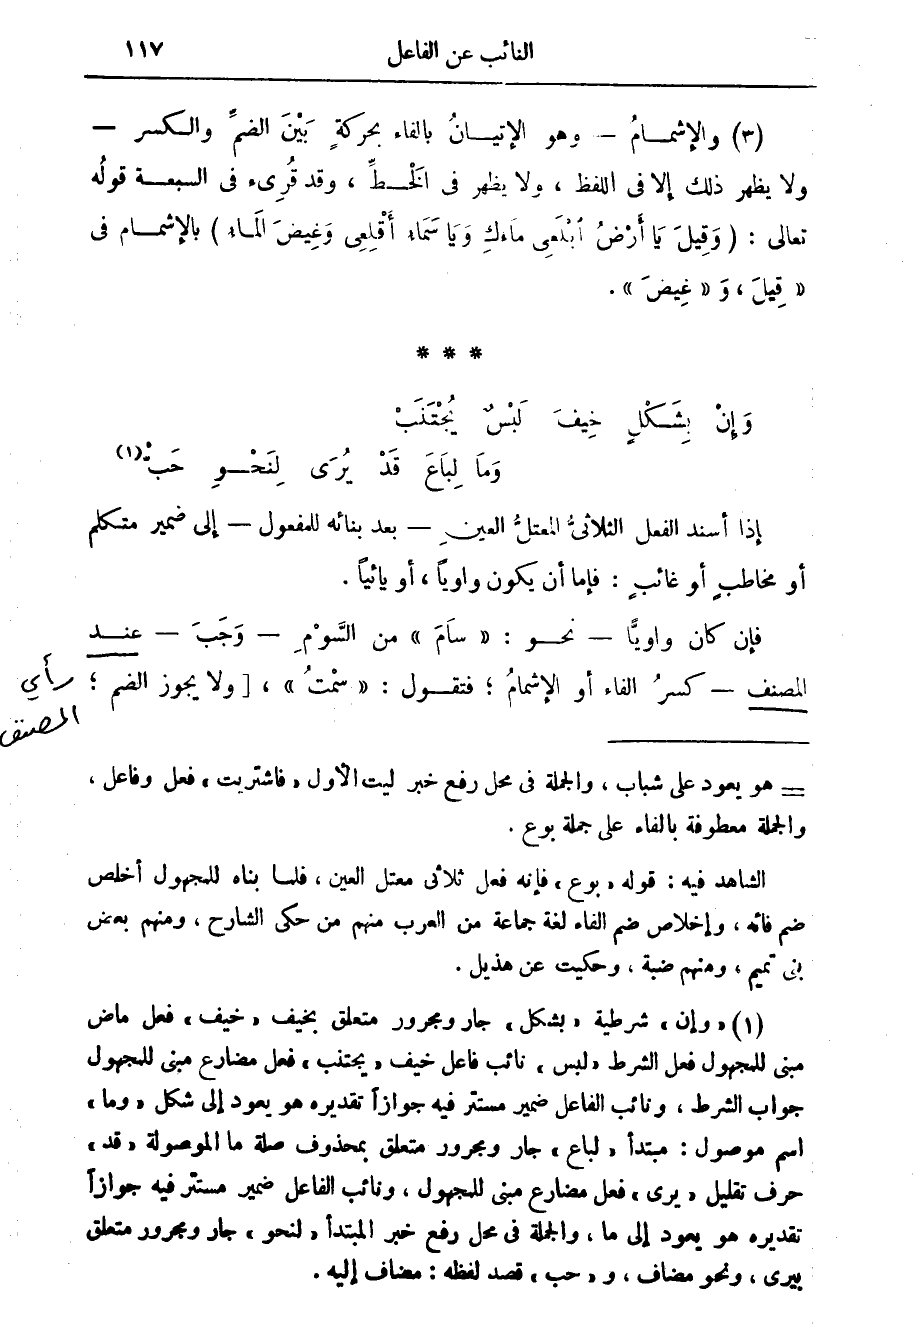 النائب عن الفاعل ١١٧
(٣) والإشمــامُ — وهو الإتيــانُ بالفاء بحركةٍ بَيْنَ الضمِّ والـكسر —
ولا يظهر ذلك إلا فى اللفظ ، ولا يظهر فى الخــطِّ ، وقد قُرِىء فى السبعــة قولُه
تعالى : ( وَقِيلَ يَا أَرْضُ ٱبْلَعِى مَاءَكِ وَيَا سَمَاء أَقْلِعِى وَغِيضَ الْمَاء ) بالإشمــام فى
« قِيلَ ، وَ « غِيضَ » .
* * *
وَإِنْ بِشَـكْلٍ خِيفَ لَبْسٌ يُجْتَنَبْ
وَمَا لِبَاعَ قَدْ يُرَى لِنَحْــوِ حَبّْ(١)
إذا أسند الفعل الثلاثىُّ المعتلُّ العينِ — بعد بنائه للمفعول — إلى ضمير متـكلم
أو مخاطبٍ أو غائبٍ : فإما أن يكون واوياً ، أو يائياً .
فإن كان واويًّا — نحــو : « سَامَ » من السَّوْمِ — وَجَبَ — عنــد
المصنف — كسرُ الفاء أو الإشمامُ ؛ فتقــول : « سِمْتُ » ، [ ولا يجوز الضم ؛
رأي
المصنف
= هو يعود على شباب ، والجملة فى محل رفع خبر ليت الأول « فاشتريت » فعل وفاعل ،
والجملة معطوفة بالفاء على جملة بوع .
الشاهد فيه : قوله « بوع » فإنه فعل ثلاثى معتل العين ، فلمـا بناه للمجهول أخلص
ضم فائه ، وإخلاص ضم الفاء لغة جماعة من العرب منهم من حكى الشارح ، ومنهم بعض
بنى تميم ، ومنهم ضبة ، وحكيت عن هذيل .
(١) « وإن » شرطية « بشكل » جار ومجرور متعلق بخيف « خيف » فعل ماض
مبنى للمجهول فعل الشرط « لبس » نائب فاعل خيف « يجتنب » فعل مضارع مبنى للمجهول
جواب الشرط ، ونائب الفاعل ضمير مستتر فيه جوازاً تقديره هو يعود إلى شكل « وما »
اسم موصول : مبتدأ « لباع » جار ومجرور متعلق بمحذوف صلة ما الموصولة « قد »
حرف تقليل « يرى » فعل مضارع مبنى للمجهول ، ونائب الفاعل ضمير مستتر فيه جوازاً
تقديره هو يعود إلى ما ، والجملة فى محل رفع خبر المبتدأ « لنحو » جار ومجرور متعلق
بيرى ، ونحو مضاف ، و « حب » قصد لفظه : مضاف إليه .